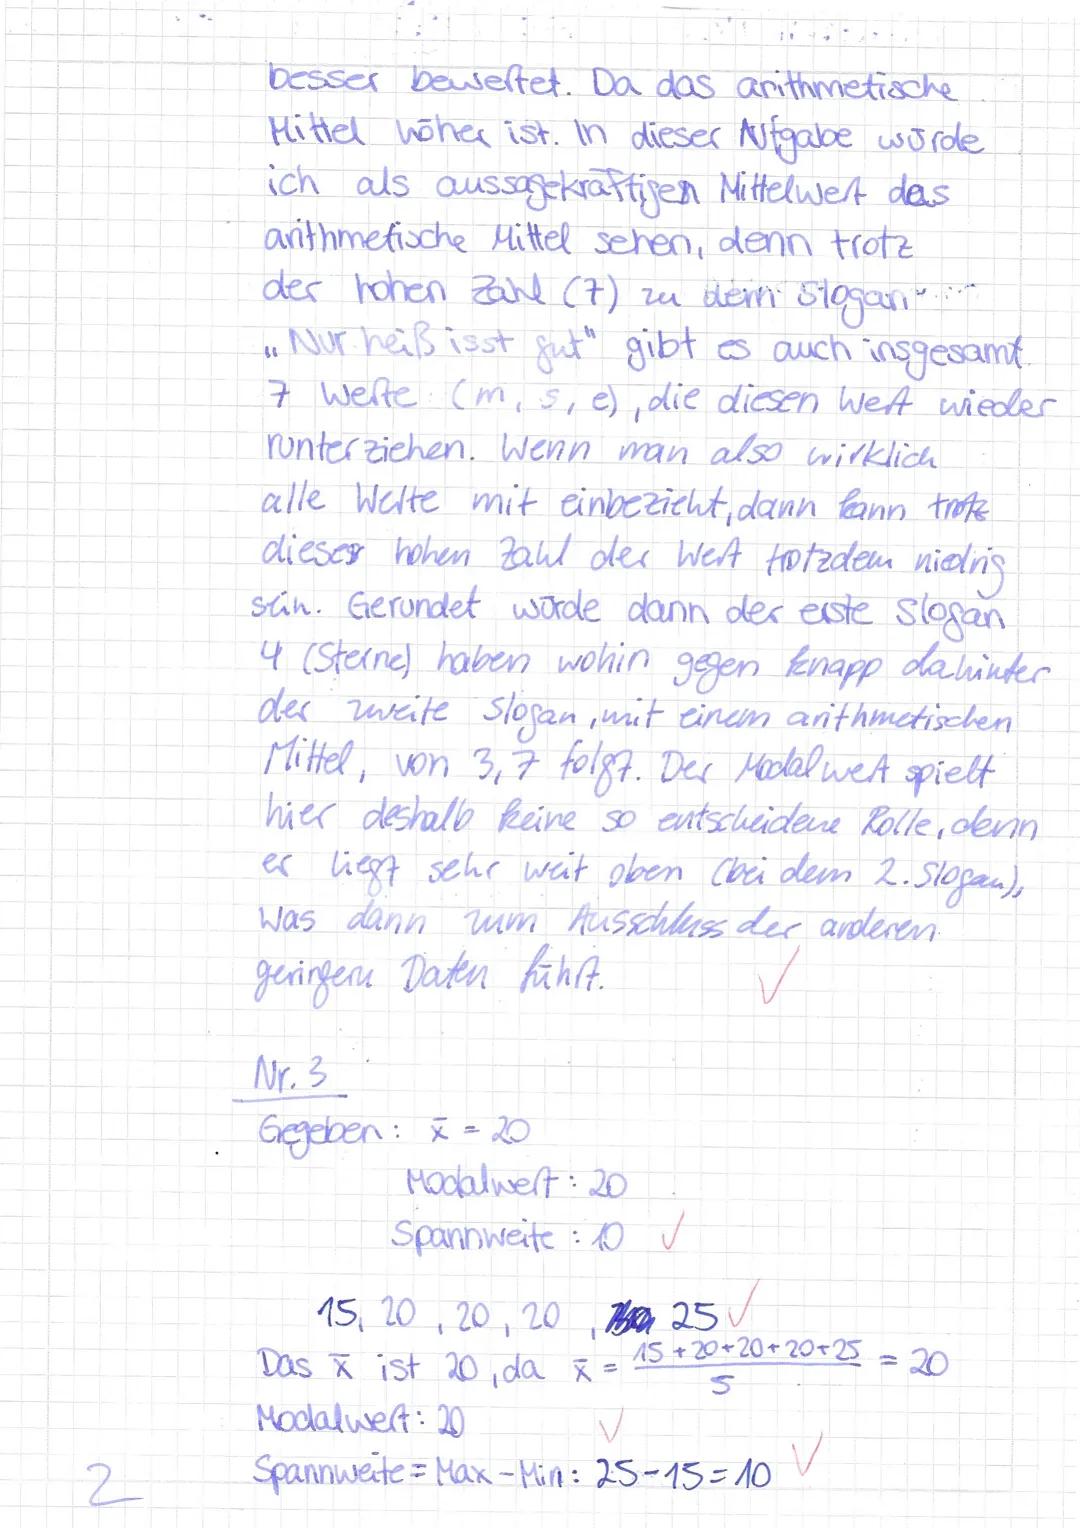 besser bewertet. Da das arithmetische
Mittel höher ist. In dieser Aufgabe würde
ich als aussagekräftigen Mittelwert das
arithmetische Mittel sehen, denn trotz
der hohen Zahl (7) zu dem Slogan
„Nur heiß isst gut" gibt es auch insgesamt
7 Werte (m, s, e), die diesen Wert wieder
runterziehen. Wenn man also wirklich
alle Werte mit einbezieht, dann kann trotz
dieser hohen Zahl der Wert trotzdem niedrig
sein. Gerundet würde dann der erste Slogan
4 (Sterne) haben wohin gegen knapp dahinter
der zweite Slogan, mit einem arithmetischen
Mittel, von 3,7 folgt. Der Modalwert spielt
hier deshalb keine so entscheidene Rolle, denn
er liegt sehr weit oben (bei dem 2. Slogan),
was dann zum Ausschluss der anderen
geringern Daten führt.
Nr. 3
Gegeben: x̄ = 20
Modalwert: 20
Spannweite: 10
15, 20, 20, 20, 25
Das x̄ ist 20, da x̄ = (15+20+20+20+25)/5 = 20
Modalwert: 20
Spannweite = Max - Min: 25-15=10
2